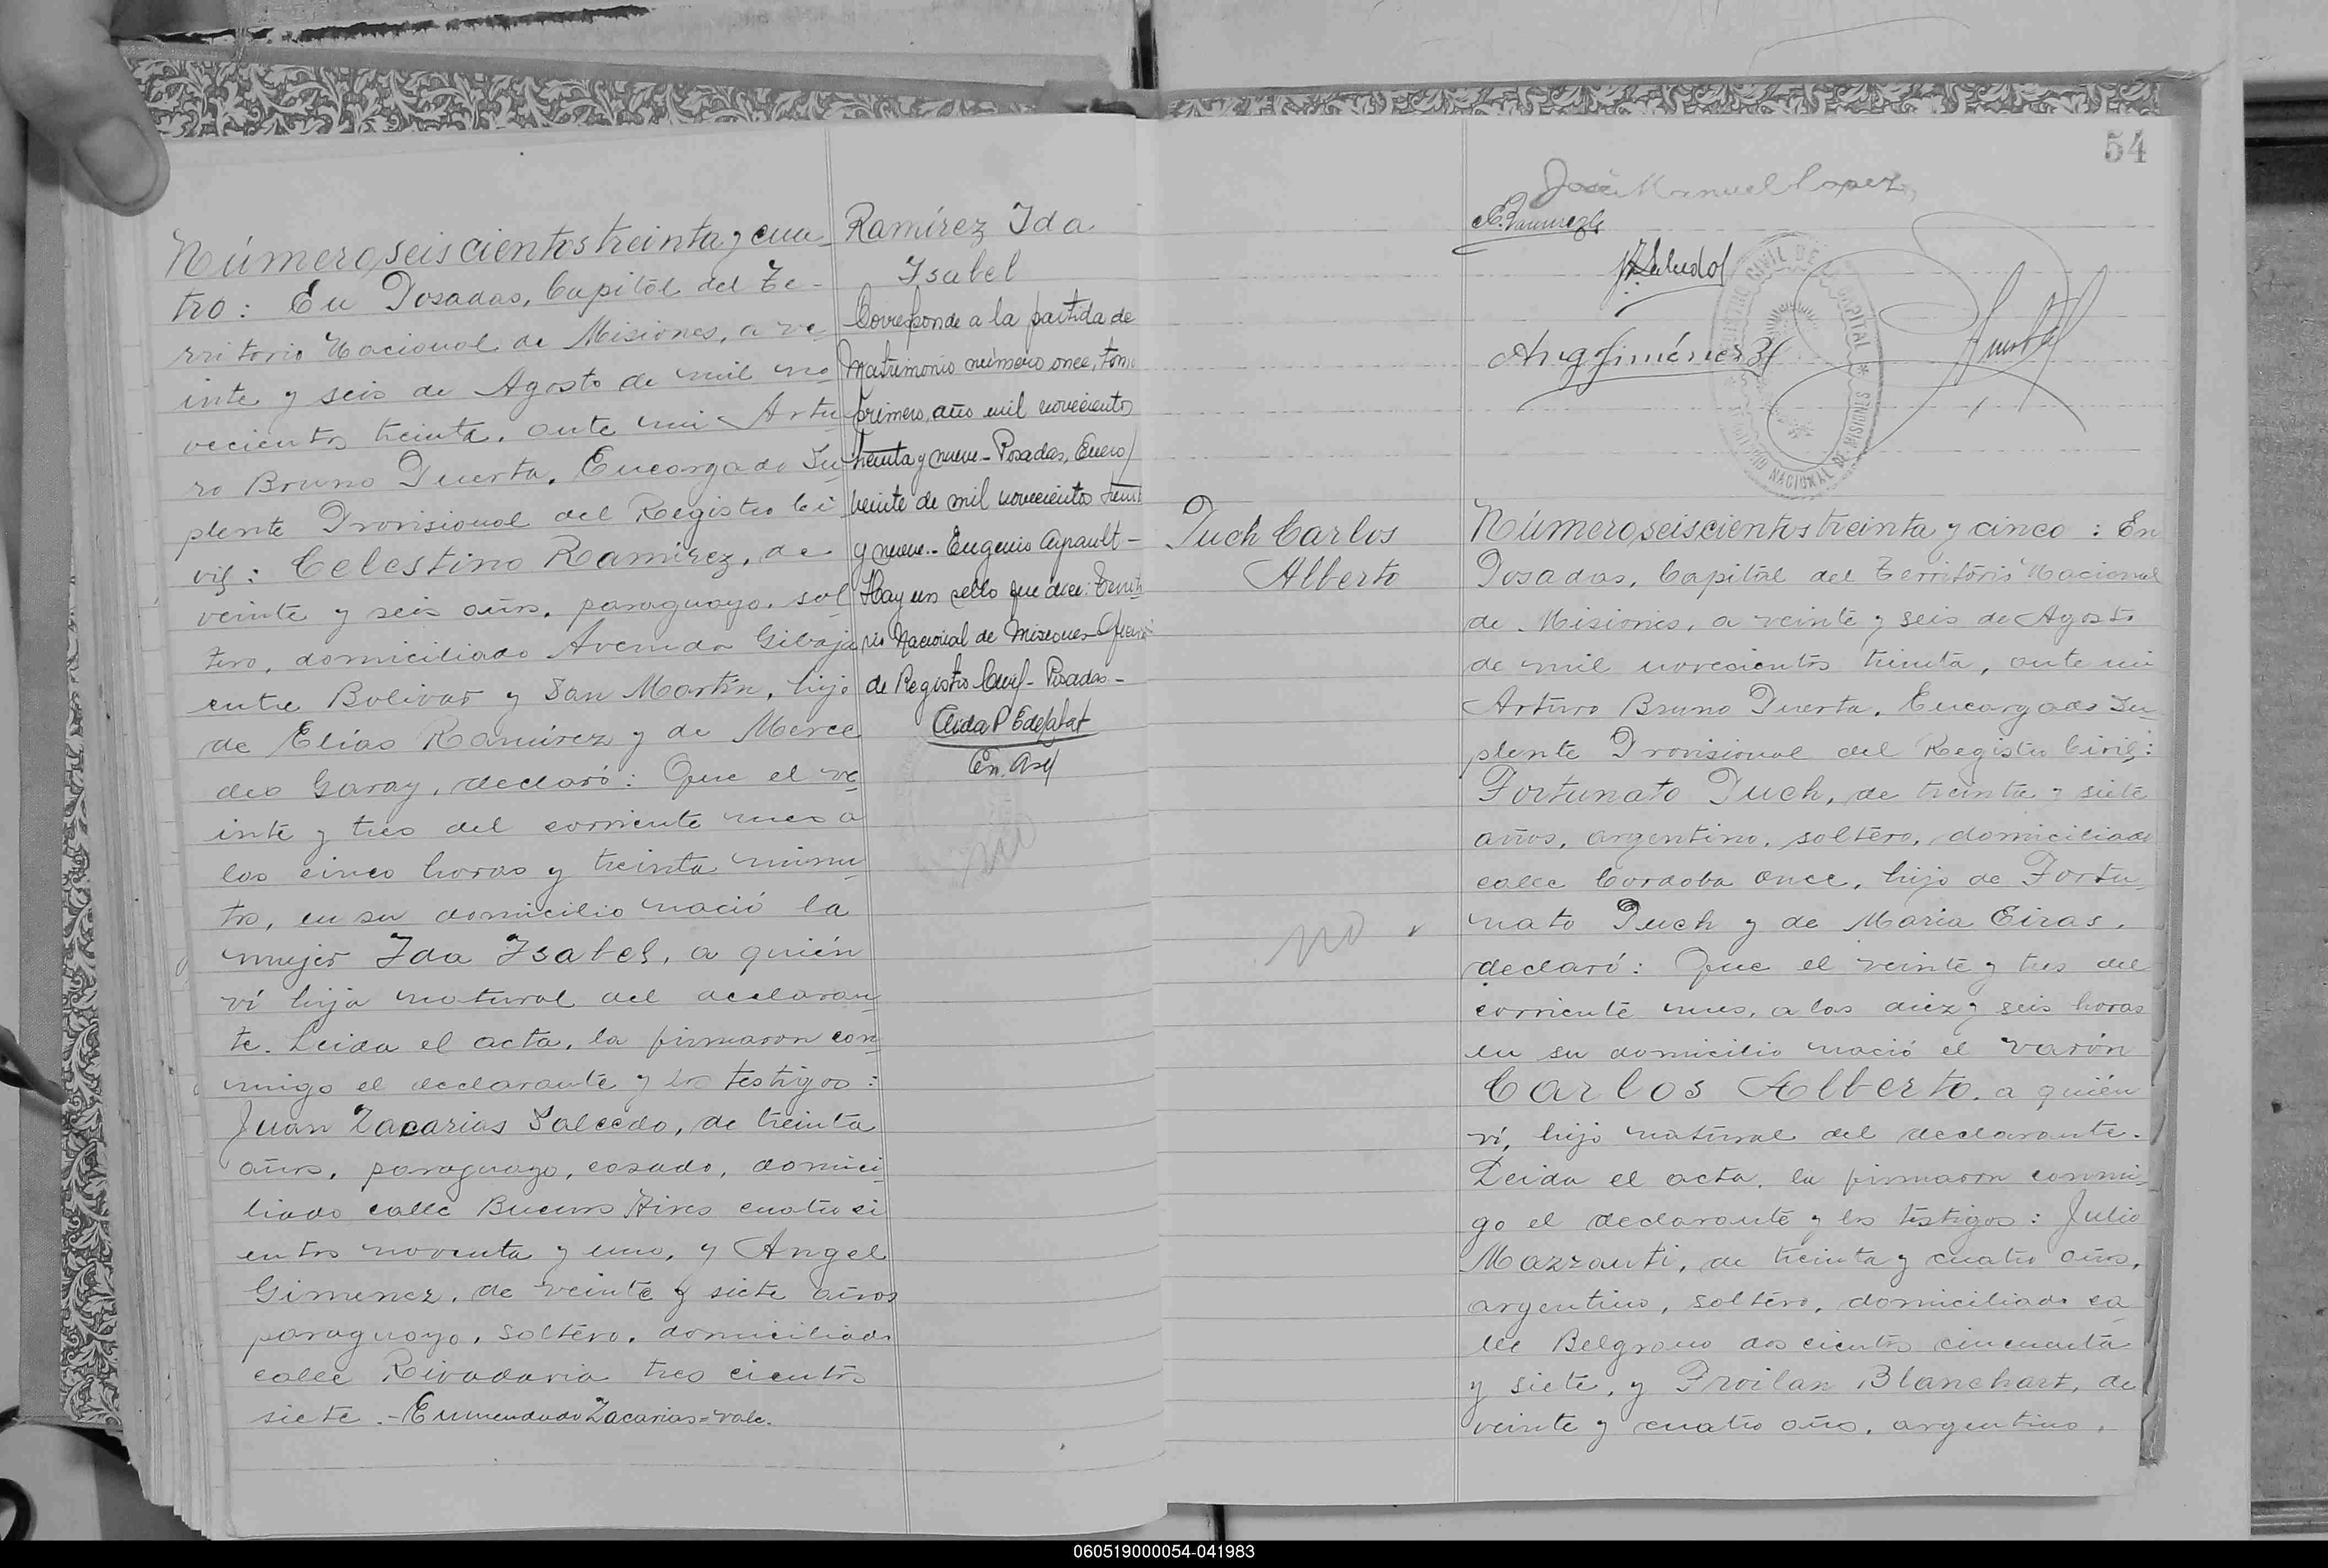 Número seiscientos treinta y cua-
tro: En Posadas, Capital del Te-
rritorio Nacional de Misiones, a ve-
inte y seis de Agosto de mil no-
vecientos treinta, ante mi Artu-
ro Bruno Puerta, Encargado Su-
plente Provisional del Registro Ci-
vil: Celestino Ramirez, de
veinte y seis años, paraguayo, sol-
tero, domiciliado Avenida Gibaja
entre Bolivar y San Martín, hijo
de Elías Ramirez y de Merce-
des Garay, declaró: Que el ve-
inte y tres del corriente mes a
las cinco horas y treinta minu-
tos, en su domicilio nació la
mujer Ida Isabel, a quién
ví hija natural del declaran-
te. Leida el acta, la firmaron con-
migo el declarante y los testigos:
Juan Zacarias Salcedo, de treinta
años, paraguayo, casado, domici-
liado calle Buenos Aires cuatroci-
entos noventa y uno, y Angel
Gimenez, de veinte y siete años
paraguayo, soltero, domiciliado
calle Rivadavia tres cientos
siete.- Enmendado Zacarias=vale.
Ramírez Ida
Isabel
Corresponde a la partida de
matrimonio número once, tomo
primero, año mil novecientos
treinta y nueve- Posadas, Enero
veinte de mil novecientos trein
y nueve.- Eugenio
Hay un sello que dice: Territo
rio Nacional de Misiones
de Registro Civil- Posadas-
no
54
José Manuel Lopez
Ang Giménez
REGISTRO CIVIL DE LA CAPITAL
TERRITORIO NACIONAL DE MISIONES
Puch Carlos
Alberto
no
Número seiscientos treinta y cinco: En
Posadas, Capital del Territorio Nacional
de Misiones, a veinte y seis de Agosto
de mil novecientos treinta, ante mi
Arturo Bruno Puerta, Encargado Su-
plente Provisional del Registro Civil:
Fortunato Puch, de treinta y siete
años, argentino, soltero, domiciliado
calle Cordoba once, hijo de Fortu-
nato Puch y de Maria Eiras,
declaró: Que el veinte y tres del
corriente mes, a las diez y seis horas
en su domicilio nació el varón
Carlos Alberto, a quién
ví, hijo natural del declarante.
Leida el acta, la firmaron conmi-
go el declarante y los testigos: Julio
Mazzanti, de treinta y cuatro años,
argentino, soltero, domiciliado ca-
lle Belgrano dos cientos cincuenta
y siete, y Froilan Blanchart, de
veinte y cuatro años, argentino,
060519000054-041983